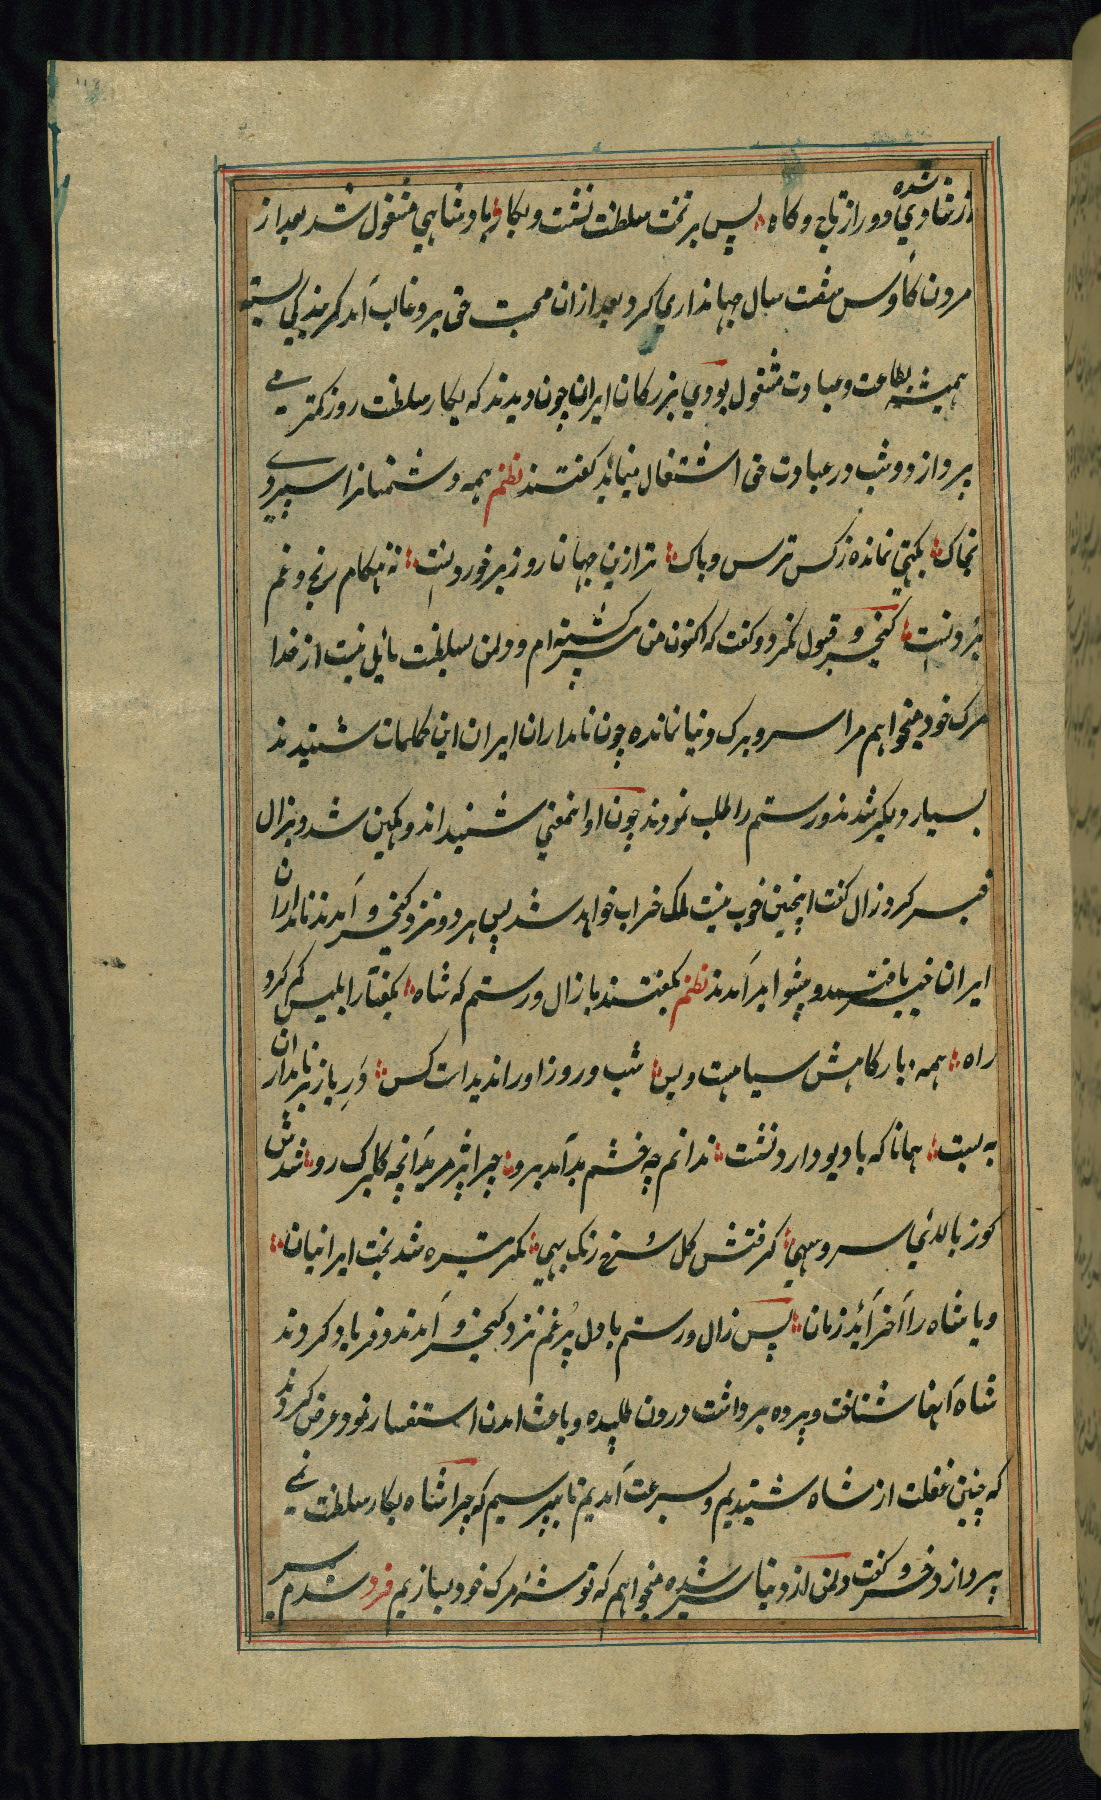 از شادی و دور از تاج و گاه پس بر تخت سلطنت نشست و بکار پادشاهی مشغول شد بعد از
مردن کاوس هفت سال جهانداری کرد و بعد ازان محبت حق برو غالب آمد کمر بندگی بسته
همیشه بطاعت و عبادت مشغول بودی بزرکان ایران چون دیدند که بکار سلطنت روز کمتر می
پردازد و شب در عبادت حق اشتغال مینماید کفتند نظم همه دشمنانرا سپردی
بخاک بکیتی نمانده ز کس ترس و باک ترا زین جهان روز برخوردنست نه هنکام رنج و غم
کیخسرو قبول نکرد و کفت که اکنون من سیر کشته ام و دلمن بسلطنت مایل نیست از خدا
مرک خود میخواهم مرا سر و برک دنیا نمانده چون نامداران ایران این کلمات شنیدند
بسیار دلکیر شدند و رستم را طلب نمودند چون او اینمعنی شنید اندوهکین شد و بزال
خبر کرد زال کفت اینچنین خوب نیست ملک خراب خواهد شد پس هر دو نزد کیخسرو آمدند نامداران
ایران خبر یافتند و پیشوا برآمدند نظم بکفتند با زال و رستم که شاه بکفتار ابلیس کم کرد
راه همه بارکاهش سیاهست و بس شب و روز او را ندیدست کس در بار بر نامداران
به بست همانا که با دیو دارد نشست ندانم چه چشم بد آمد برو چرا پژمرید آنچه کلبرک رو شدش
کوز بالای سرو سهی کرفتش کل سرخ رنک بهی مکر تیره شد بخت ایرانیان
و یا شاه را آخر آید زمان پس زال و رستم با دل پُرغم نزد کیخسرو آمدند و فریاد کردند
شاه آنها شناخت و پرده برداشت درون طلبیده و باعث امدن استفسار نمود عرض کردند
که چنین غفلت از شاه شنیدیم و بسرعت آمدیم تا بپرسیم که چرا شاه بکار سلطنت نمی
پردازد خسرو کفت دلمن از دنیا سیر شده میخواهم که توشهٔ مرک خود بسازیم فرد شدم سیر